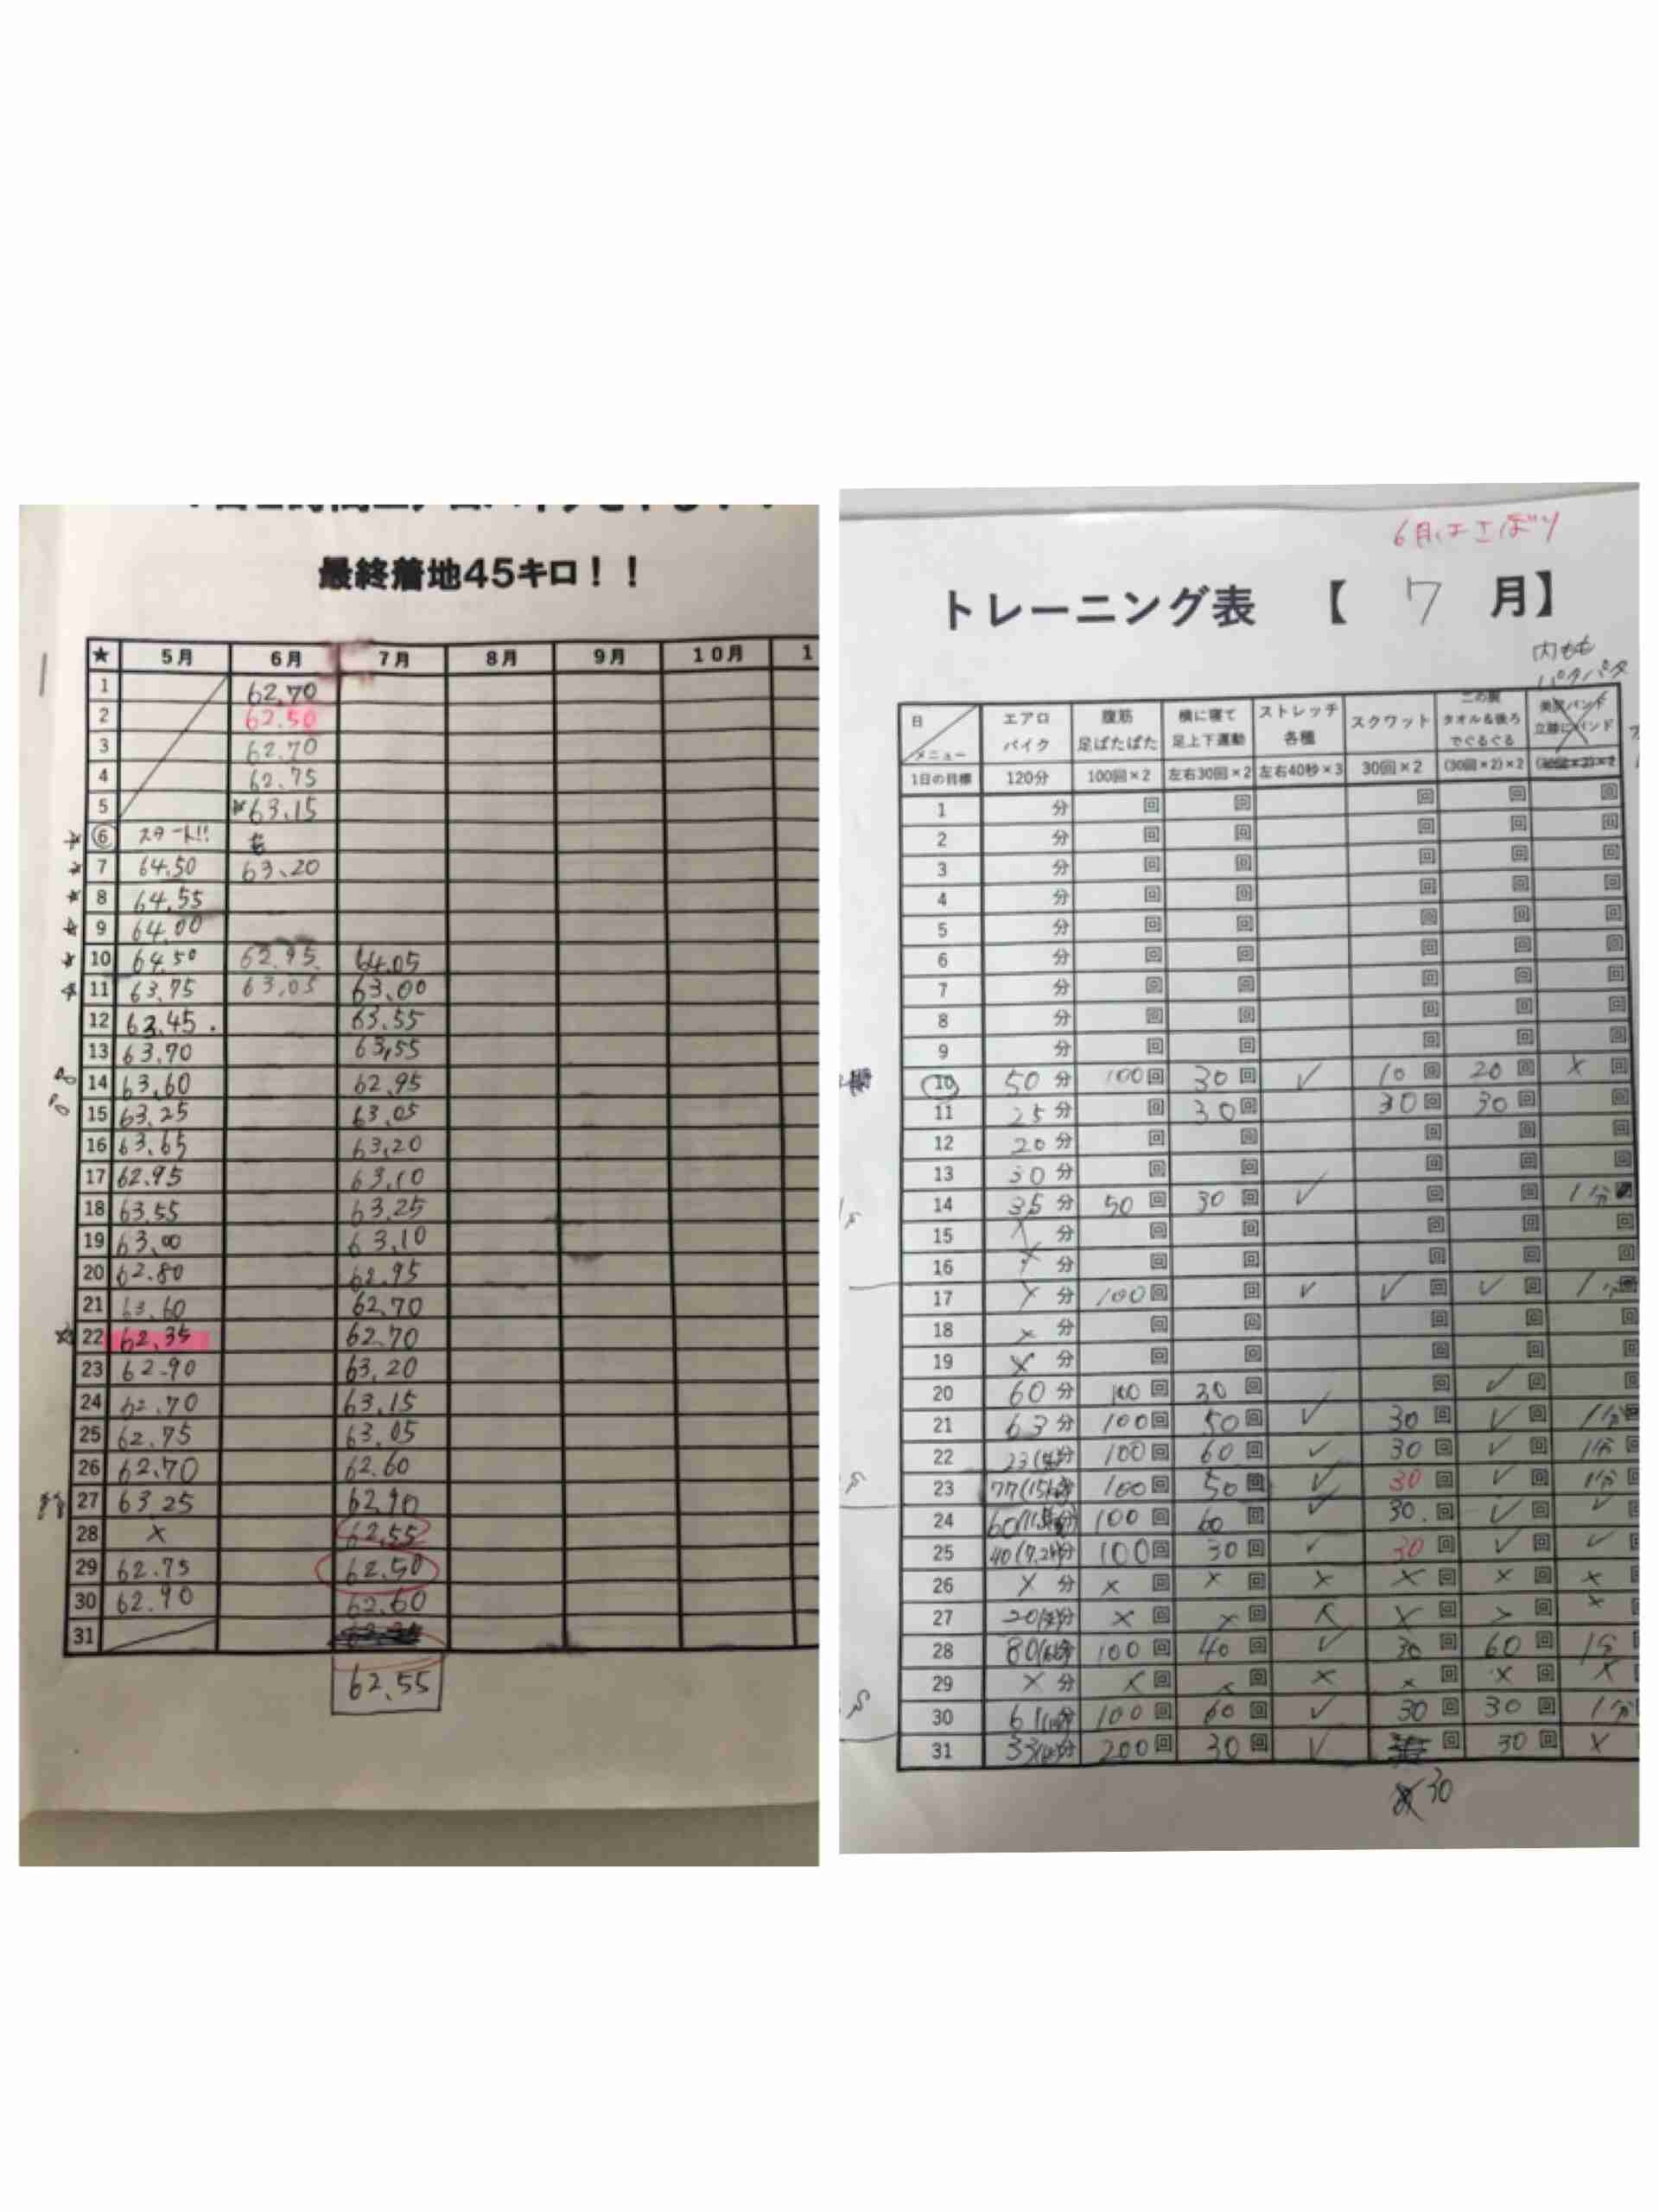 最終着地45キロ！！
★ 5月 6月 7月 8月 9月 10月 1
1 62.70
2 62.50
3 62.70
4 62.75
5 63.15
6 スタート!!
7 64.50 63.20
8 64.55
9 64.00
10 64.50 62.95 64.05
11 63.75 63.05 63.00
12 63.45 63.55
13 63.70 63.55
14 63.60 62.95
15 63.25 63.05
16 63.65 63.20
17 62.95 63.10
18 63.55 63.25
19 63.00 63.10
20 62.80 62.95
21 63.60 62.70
22 62.35 62.70
23 62.90 63.20
24 62.70 63.15
25 62.75 63.05
26 62.70 62.60
27 63.25 62.90
28 × 62.55
29 62.75 62.50
30 62.90 62.60
31
62.55
6月はさぼり
トレーニング表 【 7 月】
内もも
パタパタ
日 メニュー エアロバイク 腹筋足ばたばた 横に寝て足上下運動 ストレッチ各種 スクワット 二の腕タオル&後ろでぐるぐる
1日の目標 120分 100回×2 左右30回×2 左右40秒×3 30回×2 (30回×2)×2
1 分 回 回 回 回 回
2 分 回 回 回 回 回
3 分 回 回 回 回 回
4 分 回 回 回 回 回
5 分 回 回 回 回 回
6 分 回 回 回 回 回
7 分 回 回 回 回 回
8 分 回 回 回 回 回
9 分 回 回 回 回 回
10 50分 100回 30回 ✓ 10回 20回 ×回
11 25分 回 30回 30回 30回 回
12 20分 回 回 回 回 回
13 30分 回 回 回 回 回
14 35分 50回 30回 ✓ 回 回 1分
15 ×分 回 回 回 回 回
16 ×分 回 回 回 回 回
17 ×分 100回 回 ✓ ✓回 ✓回 1分
18 ×分 回 回 回 回 回
19 ×分 回 回 回 回 回
20 60分 100回 30回 回 ✓回 回
21 63分 100回 50回 ✓ 30回 ✓回 1分
22 23 分 100回 60回 ✓ 30回 ✓回 1分
23 77 分 100回 50回 ✓ 30回 ✓回 1分
24 60 分 100回 60回 ✓ 30回 ✓回 ✓
25 40 分 100回 30回 ✓ 30回 ✓回 ✓
26 ×分 ×回 ×回 × ×回 ×回 ×
27 20 分 ×回 ×回 × ×回 ×回 ×
28 80 分 100回 40回 ✓ 30回 60回 1分
29 ×分 ×回 ×回 × ×回 ×回 ×
30 61 分 100回 60回 ✓ 30回 30回 1分
31 33 分 200回 30回 ✓ 回 30回 ×
30